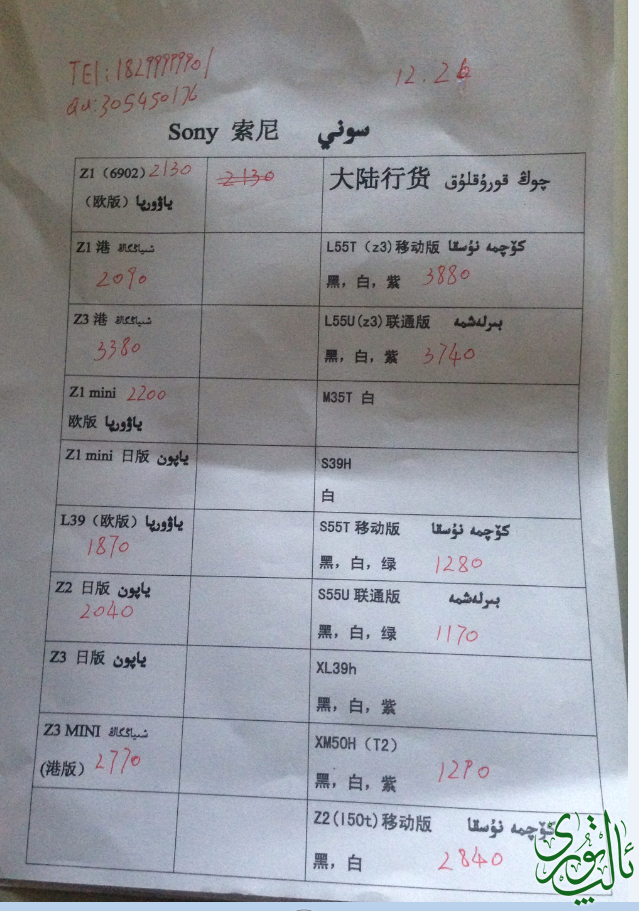 TEl: 18299999901
QQ: 305450176
12.26
Sony 索尼 سوني
Z1（6902）2130
（欧版）ياۋورپا
2130
大陆行货 چوڭ قورۇقلۇق
Z1 港 شياڭگاڭ
2090
L55T（z3)移动版 كۆچمە نۇسقا
黑，白，紫 3880
Z3 港 شياڭگاڭ
3380
L55U(z3)联通版 بىرلەشمە
黑，白，紫 3740
Z1 mini 2200
欧版 ياۋورپا
M35T 白
Z1 mini 日版 ياپون
S39H
白
L39（欧版）ياۋورپا
1870
S55T 移动版 كۆچمە نۇسقا
黑，白，绿 1280
Z2 日版 ياپون
2040
S55U 联通版 بىرلەشمە
黑，白，绿 1170
Z3 日版 ياپون
XL39h
黑，白，紫
Z3 MINI شياڭگاڭ
(港版） 2770
XM50H（T2）
黑，白，紫 1290
Z2(l50t)移动版 كۆچمە نۇسقا
黑，白 2840